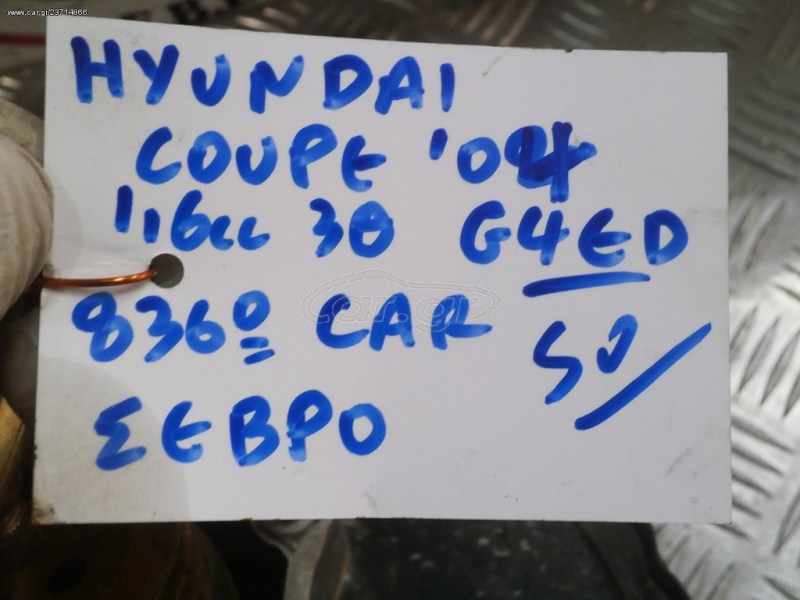 www.car.gr/23714866
HYUNDAI
COUPE '04
1,16cc 30 G4ED
836º CAR
50/
ΣΕΒΡΟ